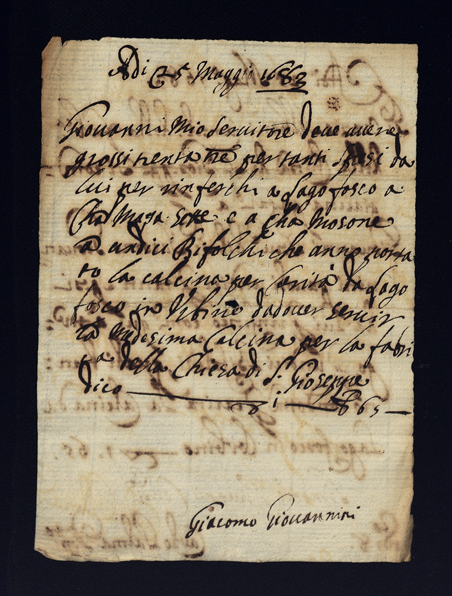 Adi 25 Maggio 1682
Giovanni mio servitore deve avere
grossi trenta tre per tanti spesi da
lui per rinfreschi a Lago fosco a
Cha e a Cha Mosone
a undici Bifolchi che anno porta
to la calcina per carità da Lago
fosco in Urbino da dover servir
la medesima Calcina per la fabri
ca della Chiesa di S. Gioseppe
dico 1 65
Giacomo Giovannini